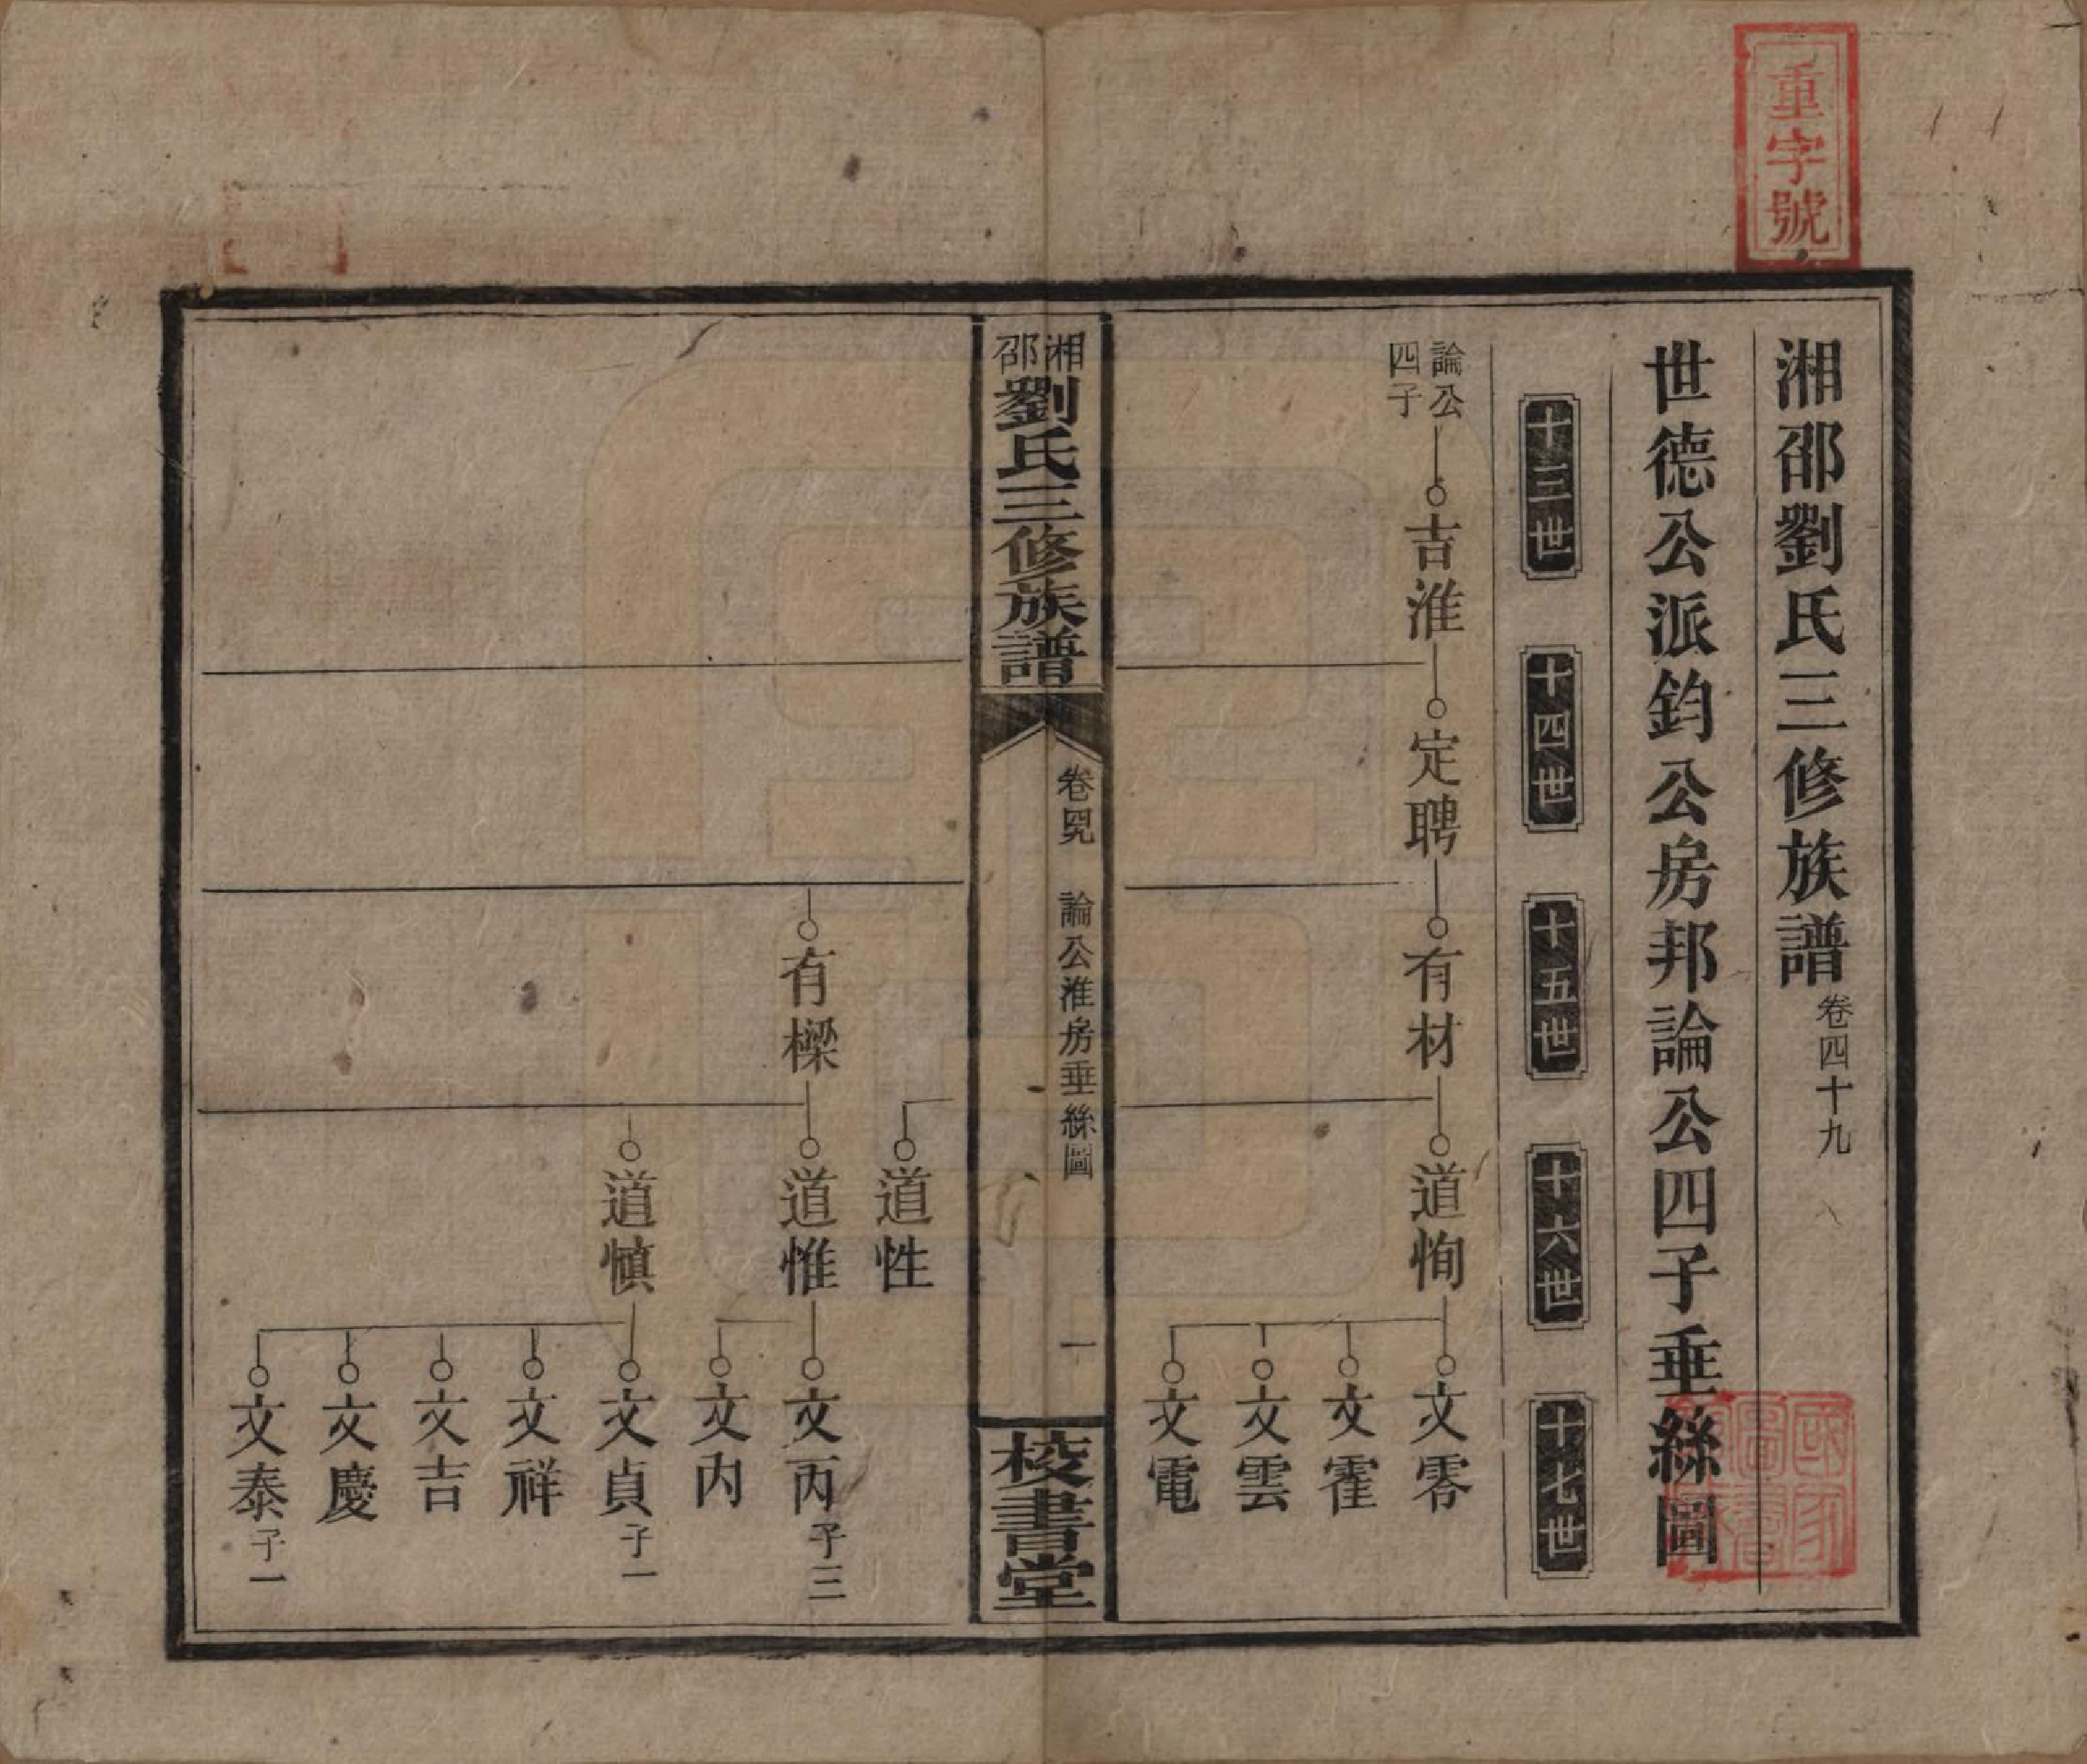 重字號
湘邵劉氏三修族譜卷四十九
世德公派鈞公房邦論公四子垂絲圖
十三世
十四世
十五世
十六世
十七世
論公
四子
吉淮
定聘
有材
道恂
文零
文霍
文雲
文電
湘邵劉氏三修族譜
卷四九
論公淮房垂絲圖
一
校書堂
道性
有樑
道惟
文丙子三
文内
道慎
文貞子一
文祥
文吉
文慶
文泰子一